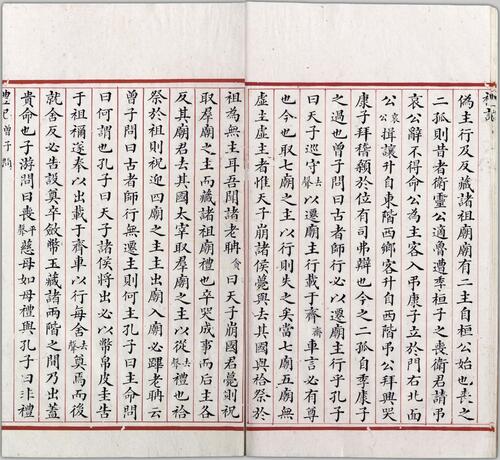 禮記
偽主行及反藏諸祖廟廟有二主自桓公始也喪之
二孤則昔者衛靈公適魯遭季桓子之喪衛君請弔
哀公辭不得命公為主客入弔康子立於門右北面
公哀公揖讓升自東階西鄉客升自西階弔公拜興哭
康子拜稽顙於位有司弗辯也今之二孤自季康子
之過也曾子問曰古者師行必以遷廟主行乎孔子
曰天子巡守去聲以遷廟主行載于齊齋車言必有尊
也今也取七廟之主以行則失之矣當七廟五廟無
虛主虛主者惟天子崩諸侯薨與去其國與祫祭於
祖為無主耳吾聞諸老聃貪曰天子崩國君薨則祝
取羣廟之主而藏諸祖廟禮也卒哭成事而后主各
反其廟君去其國太宰取羣廟之主以從去聲禮也祫
祭於祖則祝迎四廟之主主出廟入廟必蹕老聃云
曾子問曰古者師行無遷主則何主孔子曰主命問
曰何謂也孔子曰天子諸侯將出必以幣帛皮圭告
于祖禰遂奉以出載于齊車以行每舍去聲奠焉而後
就舍反必告設奠卒斂幣玉藏諸兩階之間乃出蓋
貴命也子游問曰喪平聲慈母如母禮與孔子曰非禮
禮記曾子問